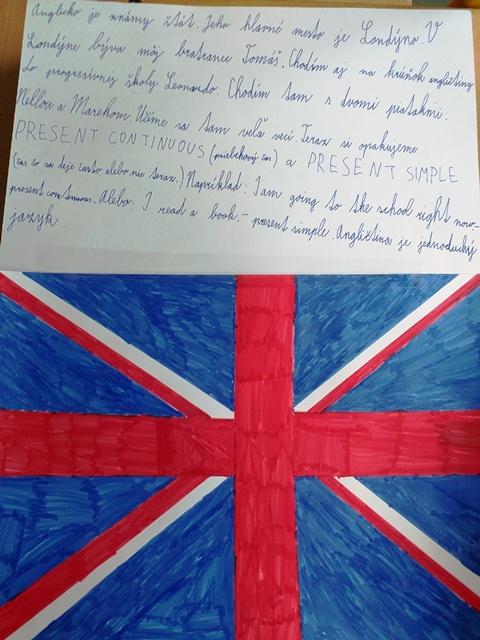 Anglicko je známy štát. Jeho hlavné mesto je Londýn. V
Londýne býva môj bratranec Tomáš. Chodím aj na krúžok angličtiny
do progresívnej školy Leonardo. Chodím tam s dvomi piatakmi.
Nellou a Marekom. Učíme sa tam veľa vecí. Teraz si opakujeme
PRESENT CONTINUOUS (priebehový čas) a PRESENT SIMPLE
(čas čo sa deje často alebo nie teraz.) Napríklad: I am going to the school right now -
present continuous. Alebo: I read a book - present simple. Angličtina je jednoduchý
jazyk.